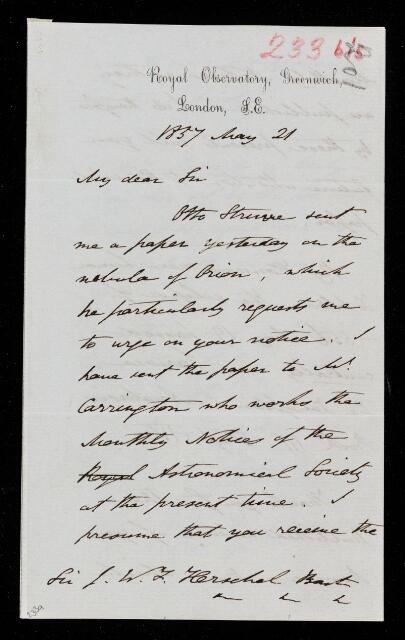 233
Royal Observatory, Greenwich,
London, S.E.
1857 May 21
My dear Sir
Otto Struve sent
me a paper yesterday on the
nebula of Orion, which
he particularly requests me
to urge on your notice. I
have sent the paper to Mr.
Carrington who works the
Monthly Notices of the
Royal Astronomical Society
at the present time. I
presume that you receive the
Sir J. W. F. Herschel Bart